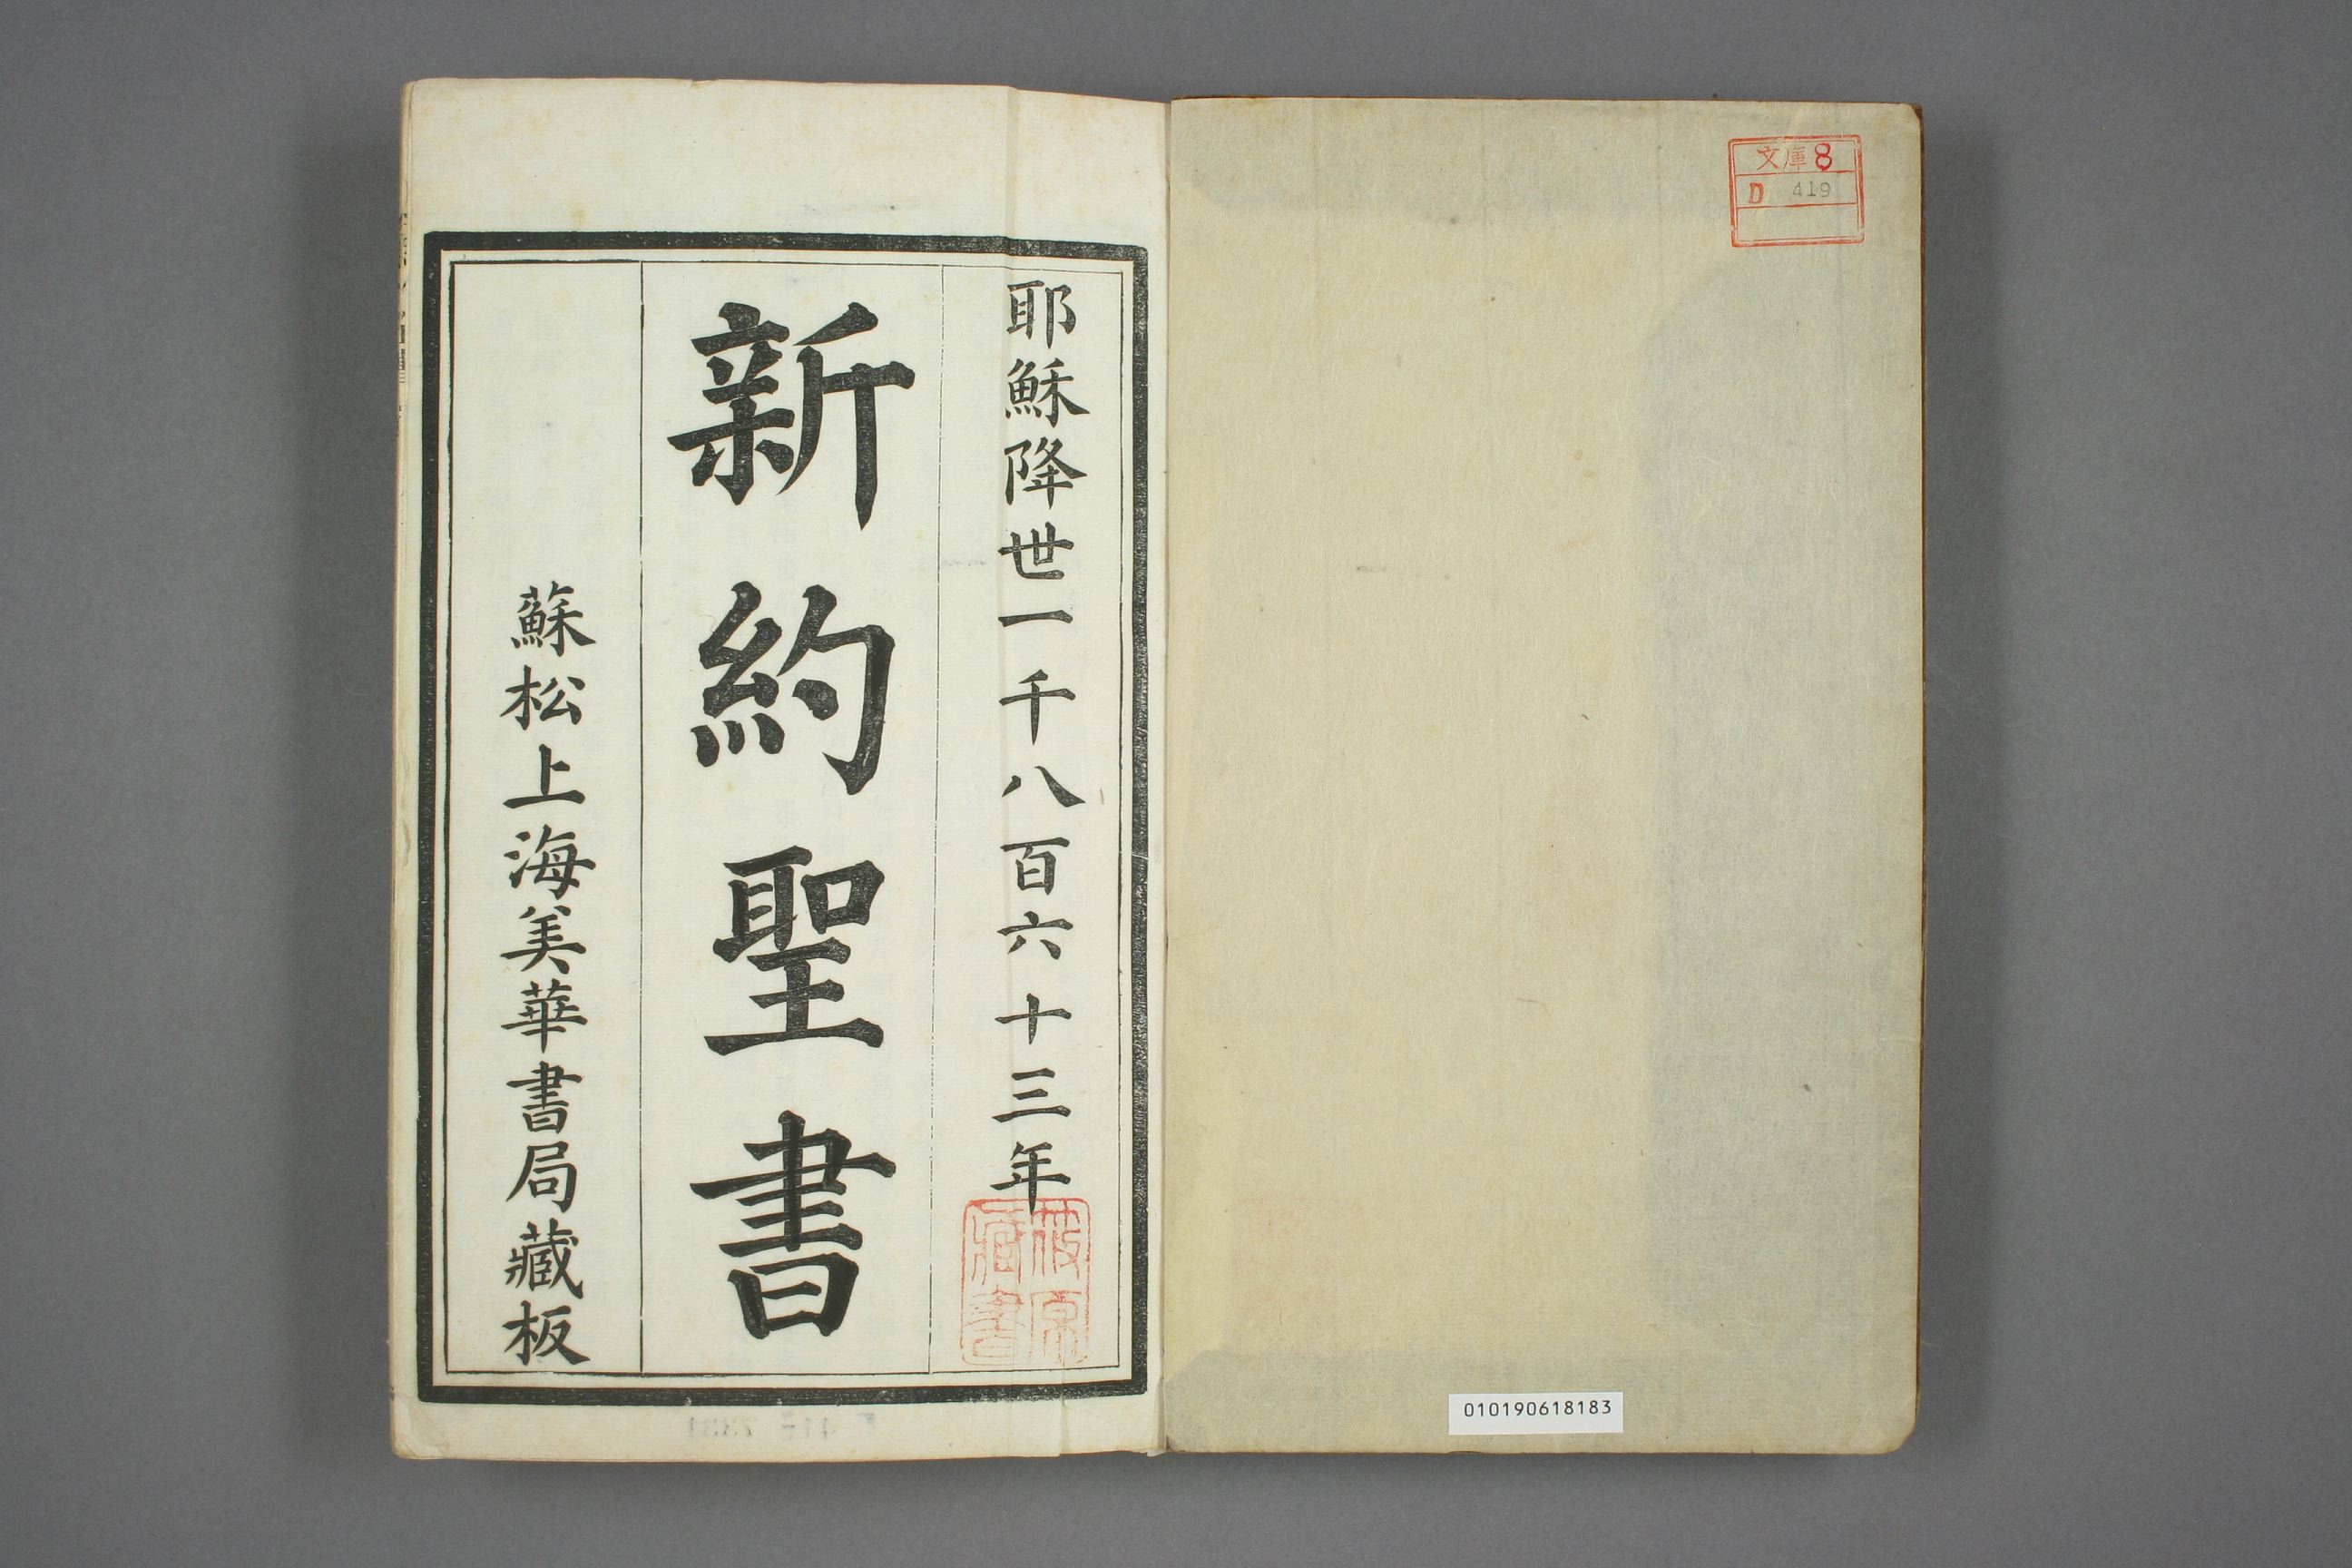 文庫8
D 419
010190618183
耶穌降世一千八百六十三年
新約聖書
蘇松上海美華書局藏板